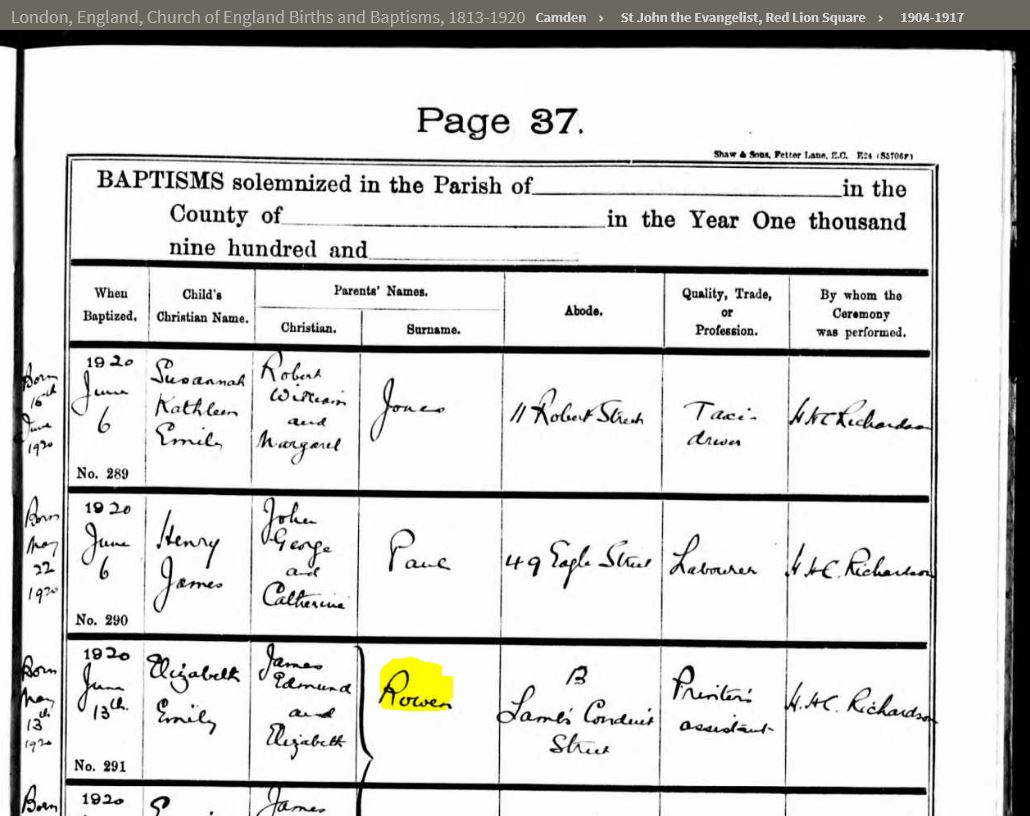 London, England, Church of England Births and Baptisms, 1813-1920 Camden › St John the Evangelist, Red Lion Square › 1904-1917
Page 37.
Shaw & Sons, Fetter Lane, E.C.
BAPTISMS solemnized in the Parish of in the
County of in the Year One thousand
nine hundred and
When Baptized.
Child's Christian Name.
Parents' Names.
Christian.
Surname.
Abode.
Quality, Trade, or Profession.
By whom the Ceremony was performed.
Born
16th
June
1920
1920
June
6
No. 289
Susannah
Kathleen
Emily
Robert
William
and
Margaret
Jones
11 Robert Street
Taxi-
driver
H.H.C. Richardson
Born
May
22
1920
1920
June
6
No. 290
Henry
James
John
George
and
Catherine
Paul
49 Eagle Street
Labourer
H.H.C. Richardson
Born
May
13th
1920
1920
June
13th.
No. 291
Elizabeth
Emily
James
Edmund
and
Elizabeth
Rowen
Lamb's Conduit
Street
Printer's
assistant
H.H.C. Richardson
Born
1920
James